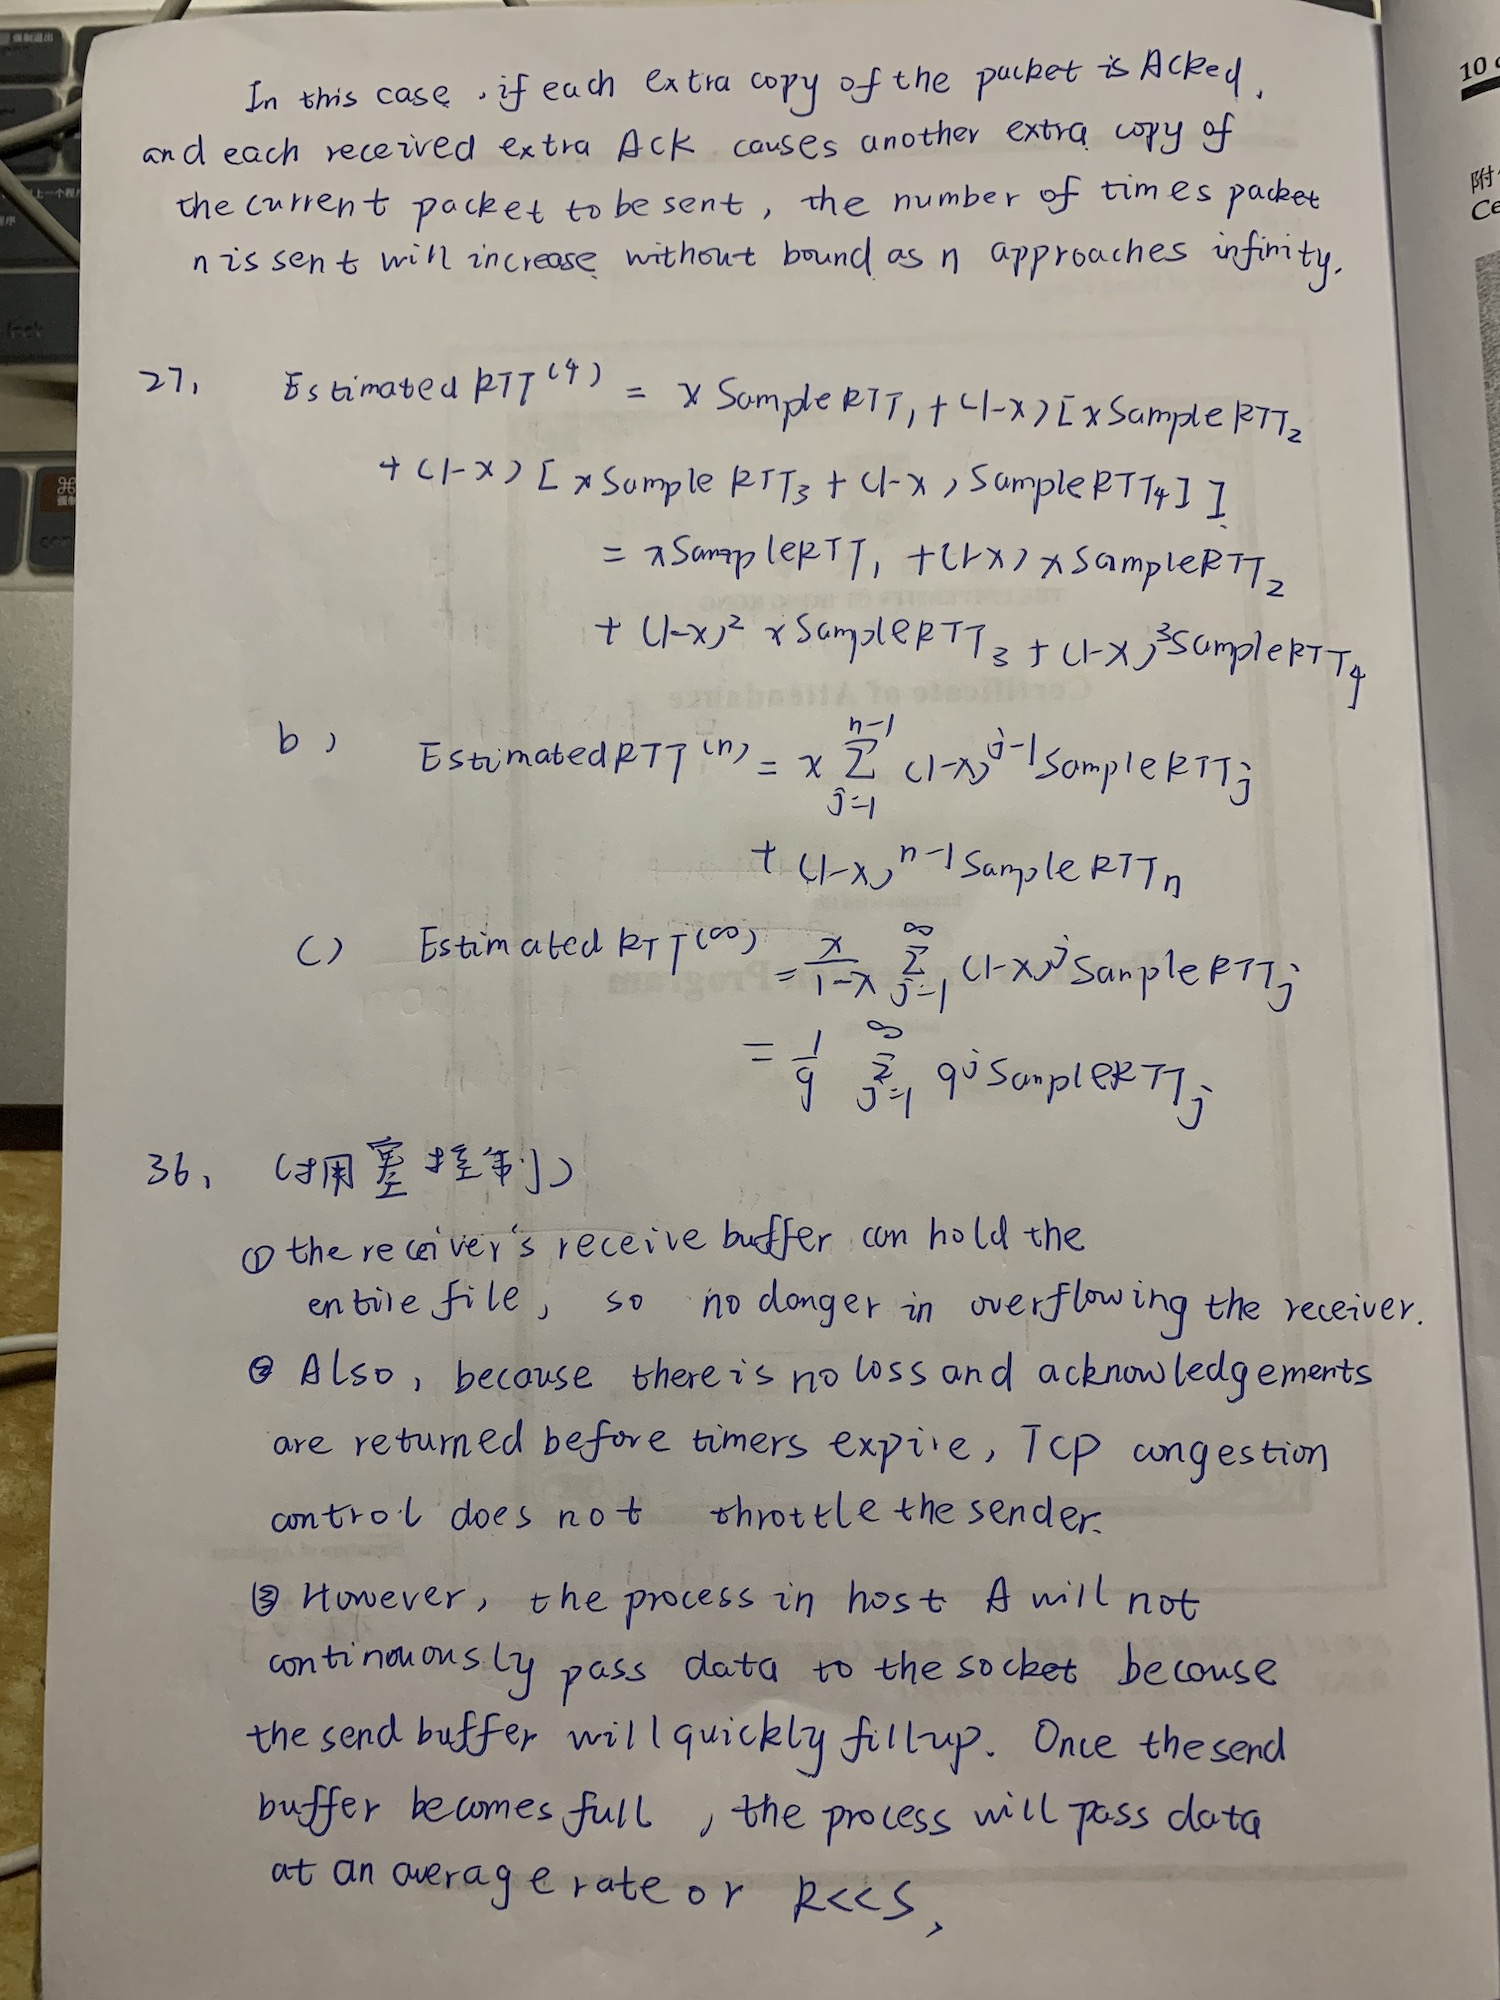 In this case, if each extra copy of the packet is Acked,
and each received extra Ack causes another extra copy of
the current packet to be sent, the number of times packet
n is sent will increase without bound as n approaches infinity.
27. Estimated RTT⁽⁴⁾ = x Sample RTT₁ + (1-x) [x Sample RTT₂
+ (1-x) [x Sample RTT₃ + (1-x) Sample RTT₄]]
= x Sample RTT₁ + (1-x) x Sample RTT₂
+ (1-x)² x Sample RTT₃ + (1-x)³ Sample RTT₄
b) Estimated RTT⁽ⁿ⁾ = x Σ_{j=1}^{n-1} (1-x)^{j-1} Sample RTTⱼ
+ (1-x)^{n-1} Sample RTTₙ
c) Estimated RTT^{(∞)} = x/(1-x) Σ_{j=1}^{∞} (1-x)^j Sample RTTⱼ
= 1/9 Σ_{j=1}^{∞} 9^j Sample RTTⱼ
36. (拥塞控制)
① the receiver's receive buffer can hold the
entire file, so no danger in overflowing the receiver.
② Also, because there is no loss and acknowledgements
are returned before timers expire, TCP congestion
control does not throttle the sender.
③ However, the process in host A will not
continuously pass data to the socket because
the send buffer will quickly fill up. Once the send
buffer becomes full, the process will pass data
at an average rate or R<<S,
强制退出
上一个程序
程序
lock
⌘
10
附
Ce